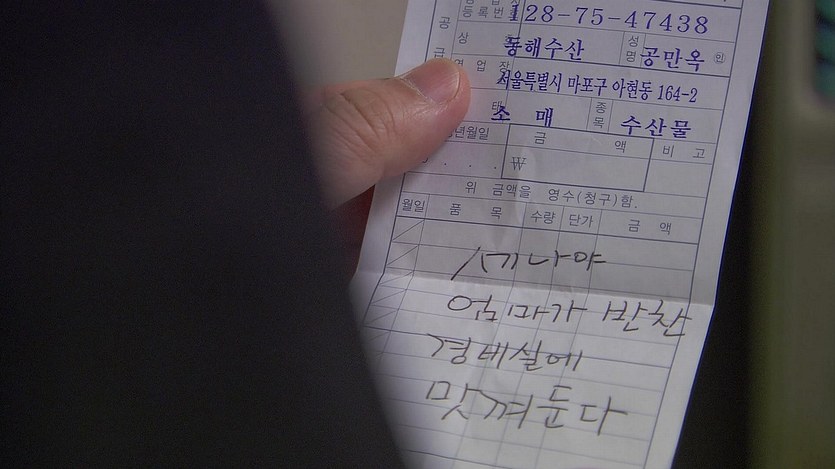 등록번호 128-75-47438
공 상 호 동해수산 성명 공만옥 ㊞
급 서울특별시 마포구 아현동 164-2
태 소 매 종목 수산물
년월일 금 액 비 고
. . . ₩
위 금액을 영수(청구)함.
월일 품 목 수량 단가 금 액
엄마가 반찬
경비실에
맛껴둔다